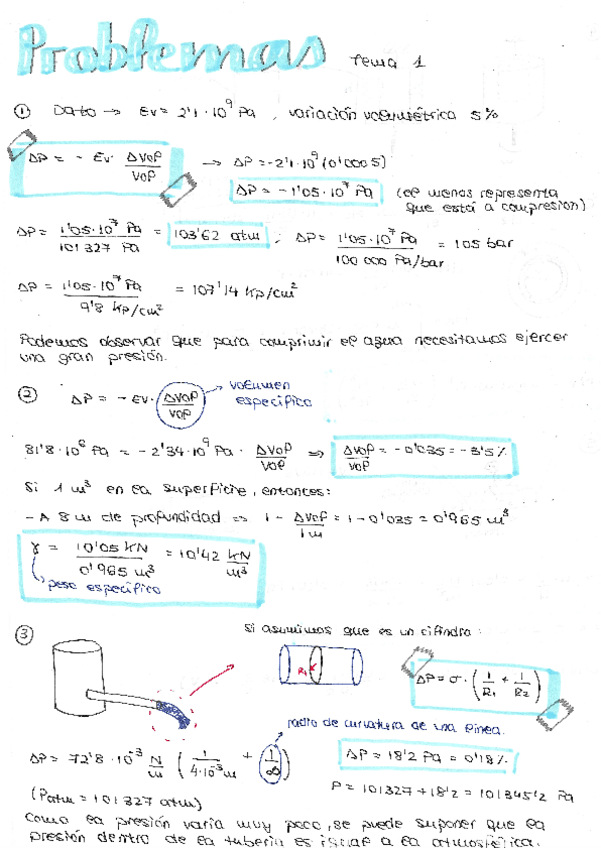 Problemas Tema 1
① Dato → Ev = 2'1 · 10⁹ Pa, variación volumétrica 5%
ΔP = - Ev · ΔVol/Vol → ΔP = -2'1 · 10⁹ (0'0005)
ΔP = -1'05 · 10⁷ Pa (el menos representa
que está a compresion)
ΔP = 1'05 · 10⁷ Pa / 101 327 Pa = 103'62 atm ; ΔP = 1'05 · 10⁷ Pa / 100 000 Pa/bar = 105 bar
ΔP = 1'05 · 10⁷ Pa / 9'8 Kp/cm² = 107'14 Kp/cm²
Podemos observar que para comprimir el agua necesitamos ejercer
una gran presión.
② ΔP = - Ev · ΔVol/Vol → volumen
específico
81'8 · 10⁶ Pa = -2'34 · 10⁹ Pa · ΔVol/Vol ⇒ ΔVol/Vol = -0'035 = -3'5%
Si 1 m³ en la superficie, entonces:
- A 8 m de profundidad ⇒ 1 - ΔVol/1m = 1 - 0'035 = 0'965 m³
γ = 10'05 KN / 0'965 m³ = 10'42 KN/m³
peso específico
③ Si asumimos que es un cilindro:
R₁
ΔP = σ · (1/R₁ + 1/R₂)
radio de curvatura de una línea.
ΔP = 72'8 · 10⁻³ N/m (1/4·10⁻³m + 1/∞) ΔP = 18'2 Pa = 0'18%
P = 101327 + 18'2 = 101345'2 Pa
(Patm = 101 327 atm)
Como la presión varía muy poco, se puede suponer que la
presión dentro de la tubería es igual a la atmosférica.